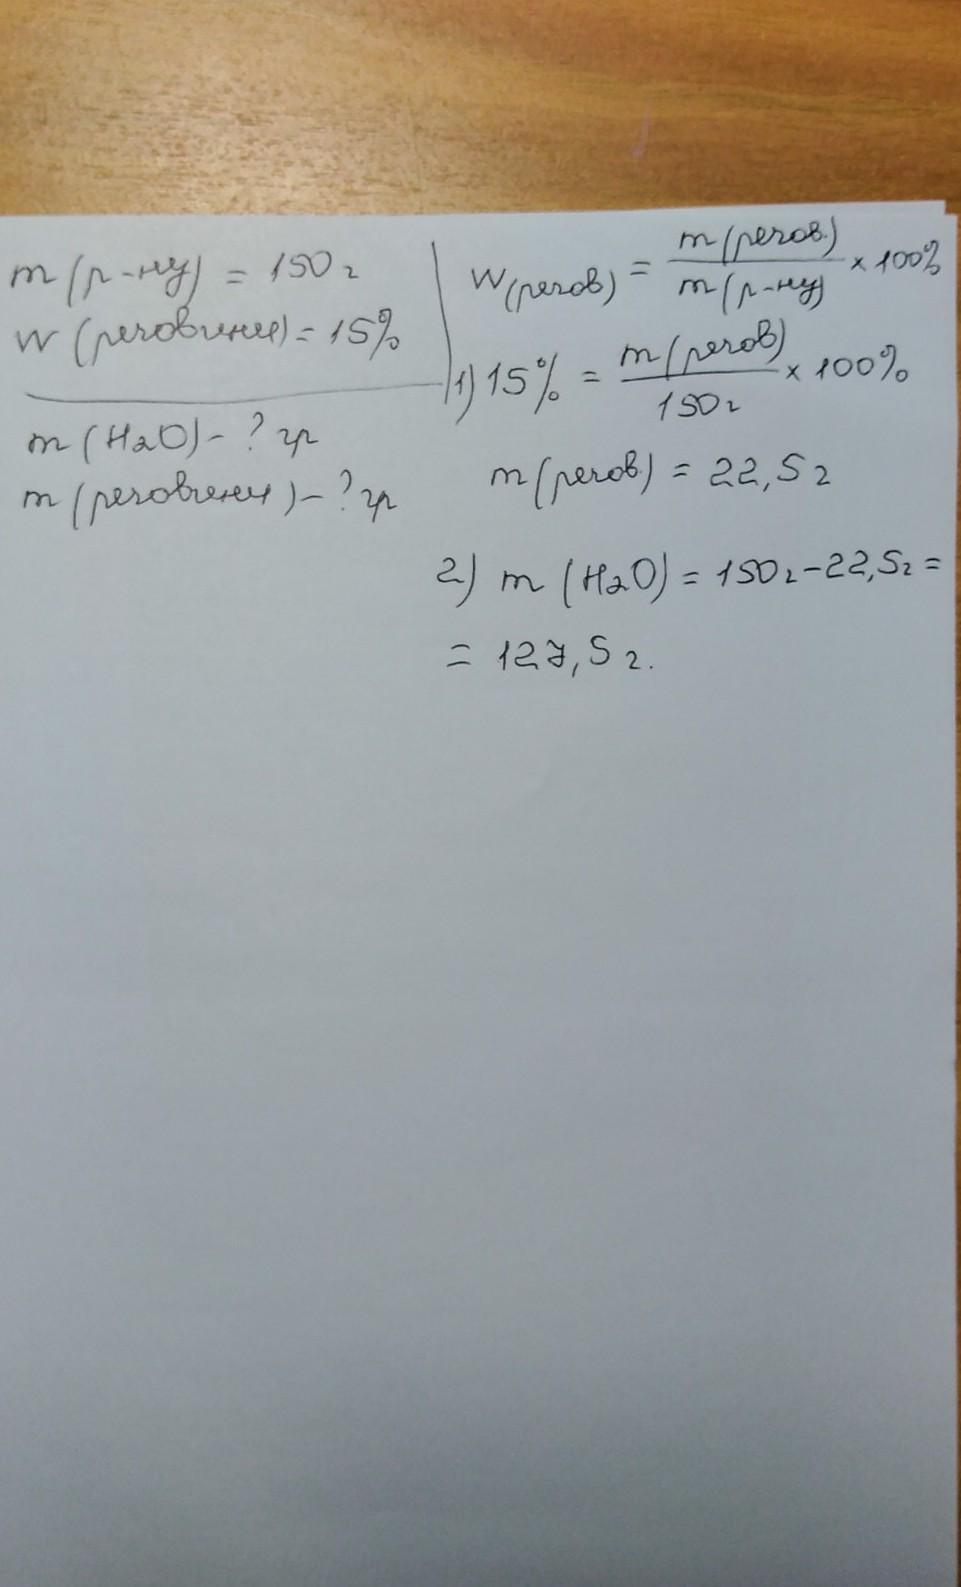 m (р-ну) = 150 г
w (речовини) = 15%
m (H2O) - ? гр
m (речовини) - ? гр
w(речов) = m (речов.) / m (р-ну) × 100%
1) 15% = m (речов) / 150г × 100%
m (речов.) = 22,5 г
2) m (H2O) = 150г - 22,5г =
= 127,5 г.